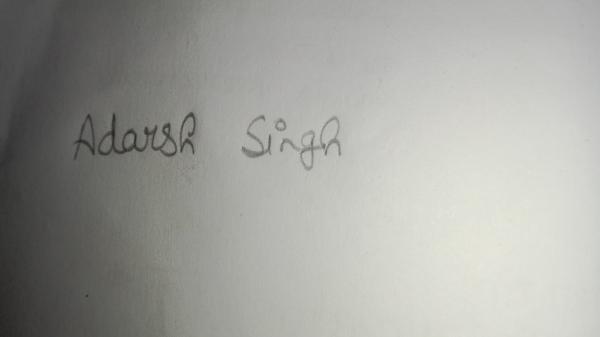 Adarsh Singh